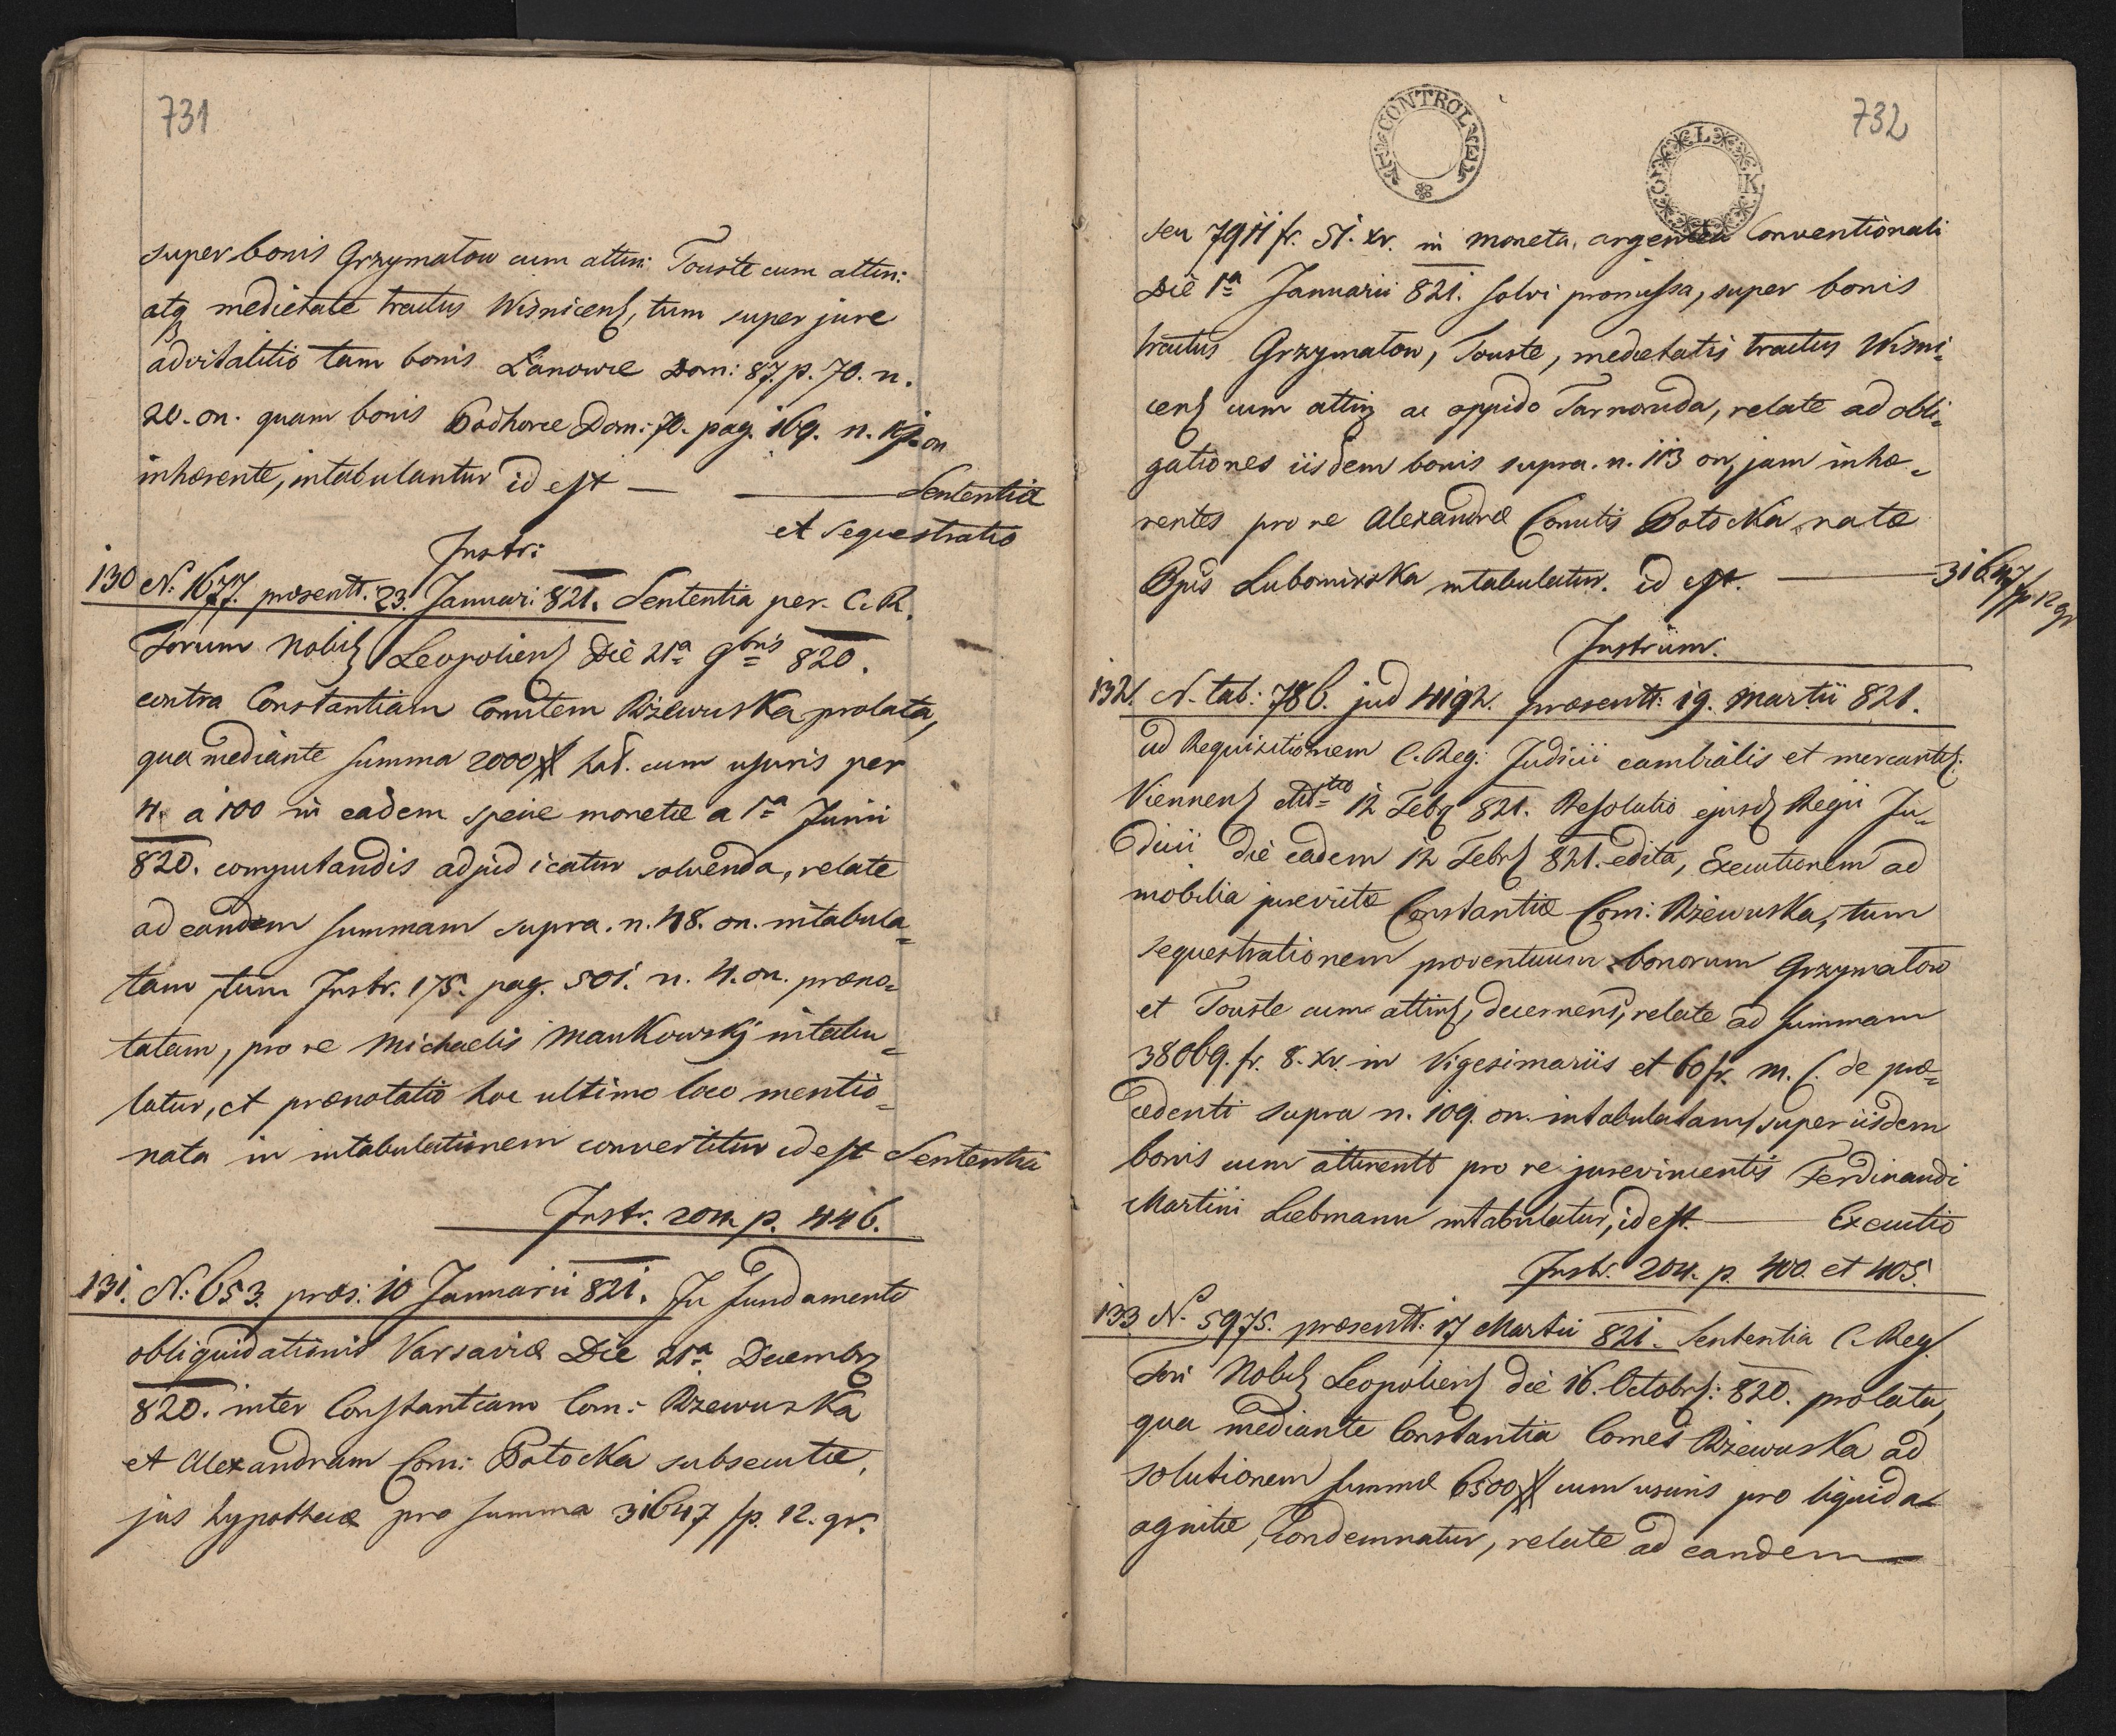 731
super bonis Grzymałow cum attin: Touste cum attin:
atq medietate tractus Wisnicens, tum super jure
advitalitio tam bonis Łanowce Dom: 87. p. 70. n.
20. on. quam bonis Podhorce Dom: 70. pag. 169. n. on
inhærente, intabulantur id est — — Sententia
et Sequestratio
Instr:
130 N. 1677. præsentt. 23. Januari 821. Sententia per C. R.
Forum Nobil Leopoliens Die 21a 9bris 820.
contra Constantiam Comitem Rzewuska prolata,
qua mediante Summa 2000 # hol. cum usuris per
4. a 100 in eadem specie monetæ a 1a Junii
820. computandis adjudicatur solvenda, relate
ad eandem Summam supra. n. 48. on. intabula=
tam, tum Instr. 175. pag. 501. n. 4. on. præno=
tatam, pro re Michaelis Mankowskj intabu=
latur, et prænotatio hoc ultimo loco mentio=
nata in intabulationem convertitur id est Sententia
Instr. 204 p. 446.
131. N: 653. præs: 10 Januarii 821. In fundamento
obliquidationis Varsaviæ Die 21a Decembr
820. inter Constantiam Com: Rzewuska
et Alexandram Com: Potocka subsecutæ,
jus hypothecæ pro Summa 31647 fp. 12. gr.
732
CONTROL
seu 7911 fr. 51. xr. in moneta argentea Conventionali
Die 1a Januarii 821. solvi promissa, super bonis
tractus Grzymałow, Touste, medietatis tractus Wisni=
cens cum attin ac oppido Tarnoruda, relate ad obli=
gationes iisdem bonis supra. n. 113 on, jam inhæ=
rentes pro re Alexandræ Comitis Potocka natæ
Ppis Lubomirska intabulatur. id est. — 31647 fp 12 gr
Instrum:
132. N. tab: 786. jud 4192. præsentt: 19. Martii 821.
ad Requisitionem C. Reg: Judicii cambialis et mercantil:
Viennens ddto 12 Febr 821. Resolutio ejusd Regii Ju=
dicii die eadem 12 Febr 821. edita, Executionem ad
mobilia jurevictæ Constantiæ Com: Rzewuska, tum
sequestrationem proventuum bonorum Grzymałow
et Touste cum attin, decernens, relate ad Summam
38069. fr. 8. xr. in Vigesimariis et 60 fr. M. C. de præ=
cedenti supra n. 109. on. intabulatam, super iisdem
bonis cum attinentt pro re jurevincentis Ferdinandi
Martini Liebmann intabulatur, id est. — Executio
Instr. 204. p. 400. et 405.
133 N. 5975. præsentt: 17 Martii 821. Sententia C. Reg.
Fori Nobil Leopoliens die 16. Octobr: 820. prolata,
qua mediante Constantia Comes Rzewuska ad
solutionem Summæ 6500 # cum usuris pro liquida
agnitæ, Condemnatur, relate ad eandem